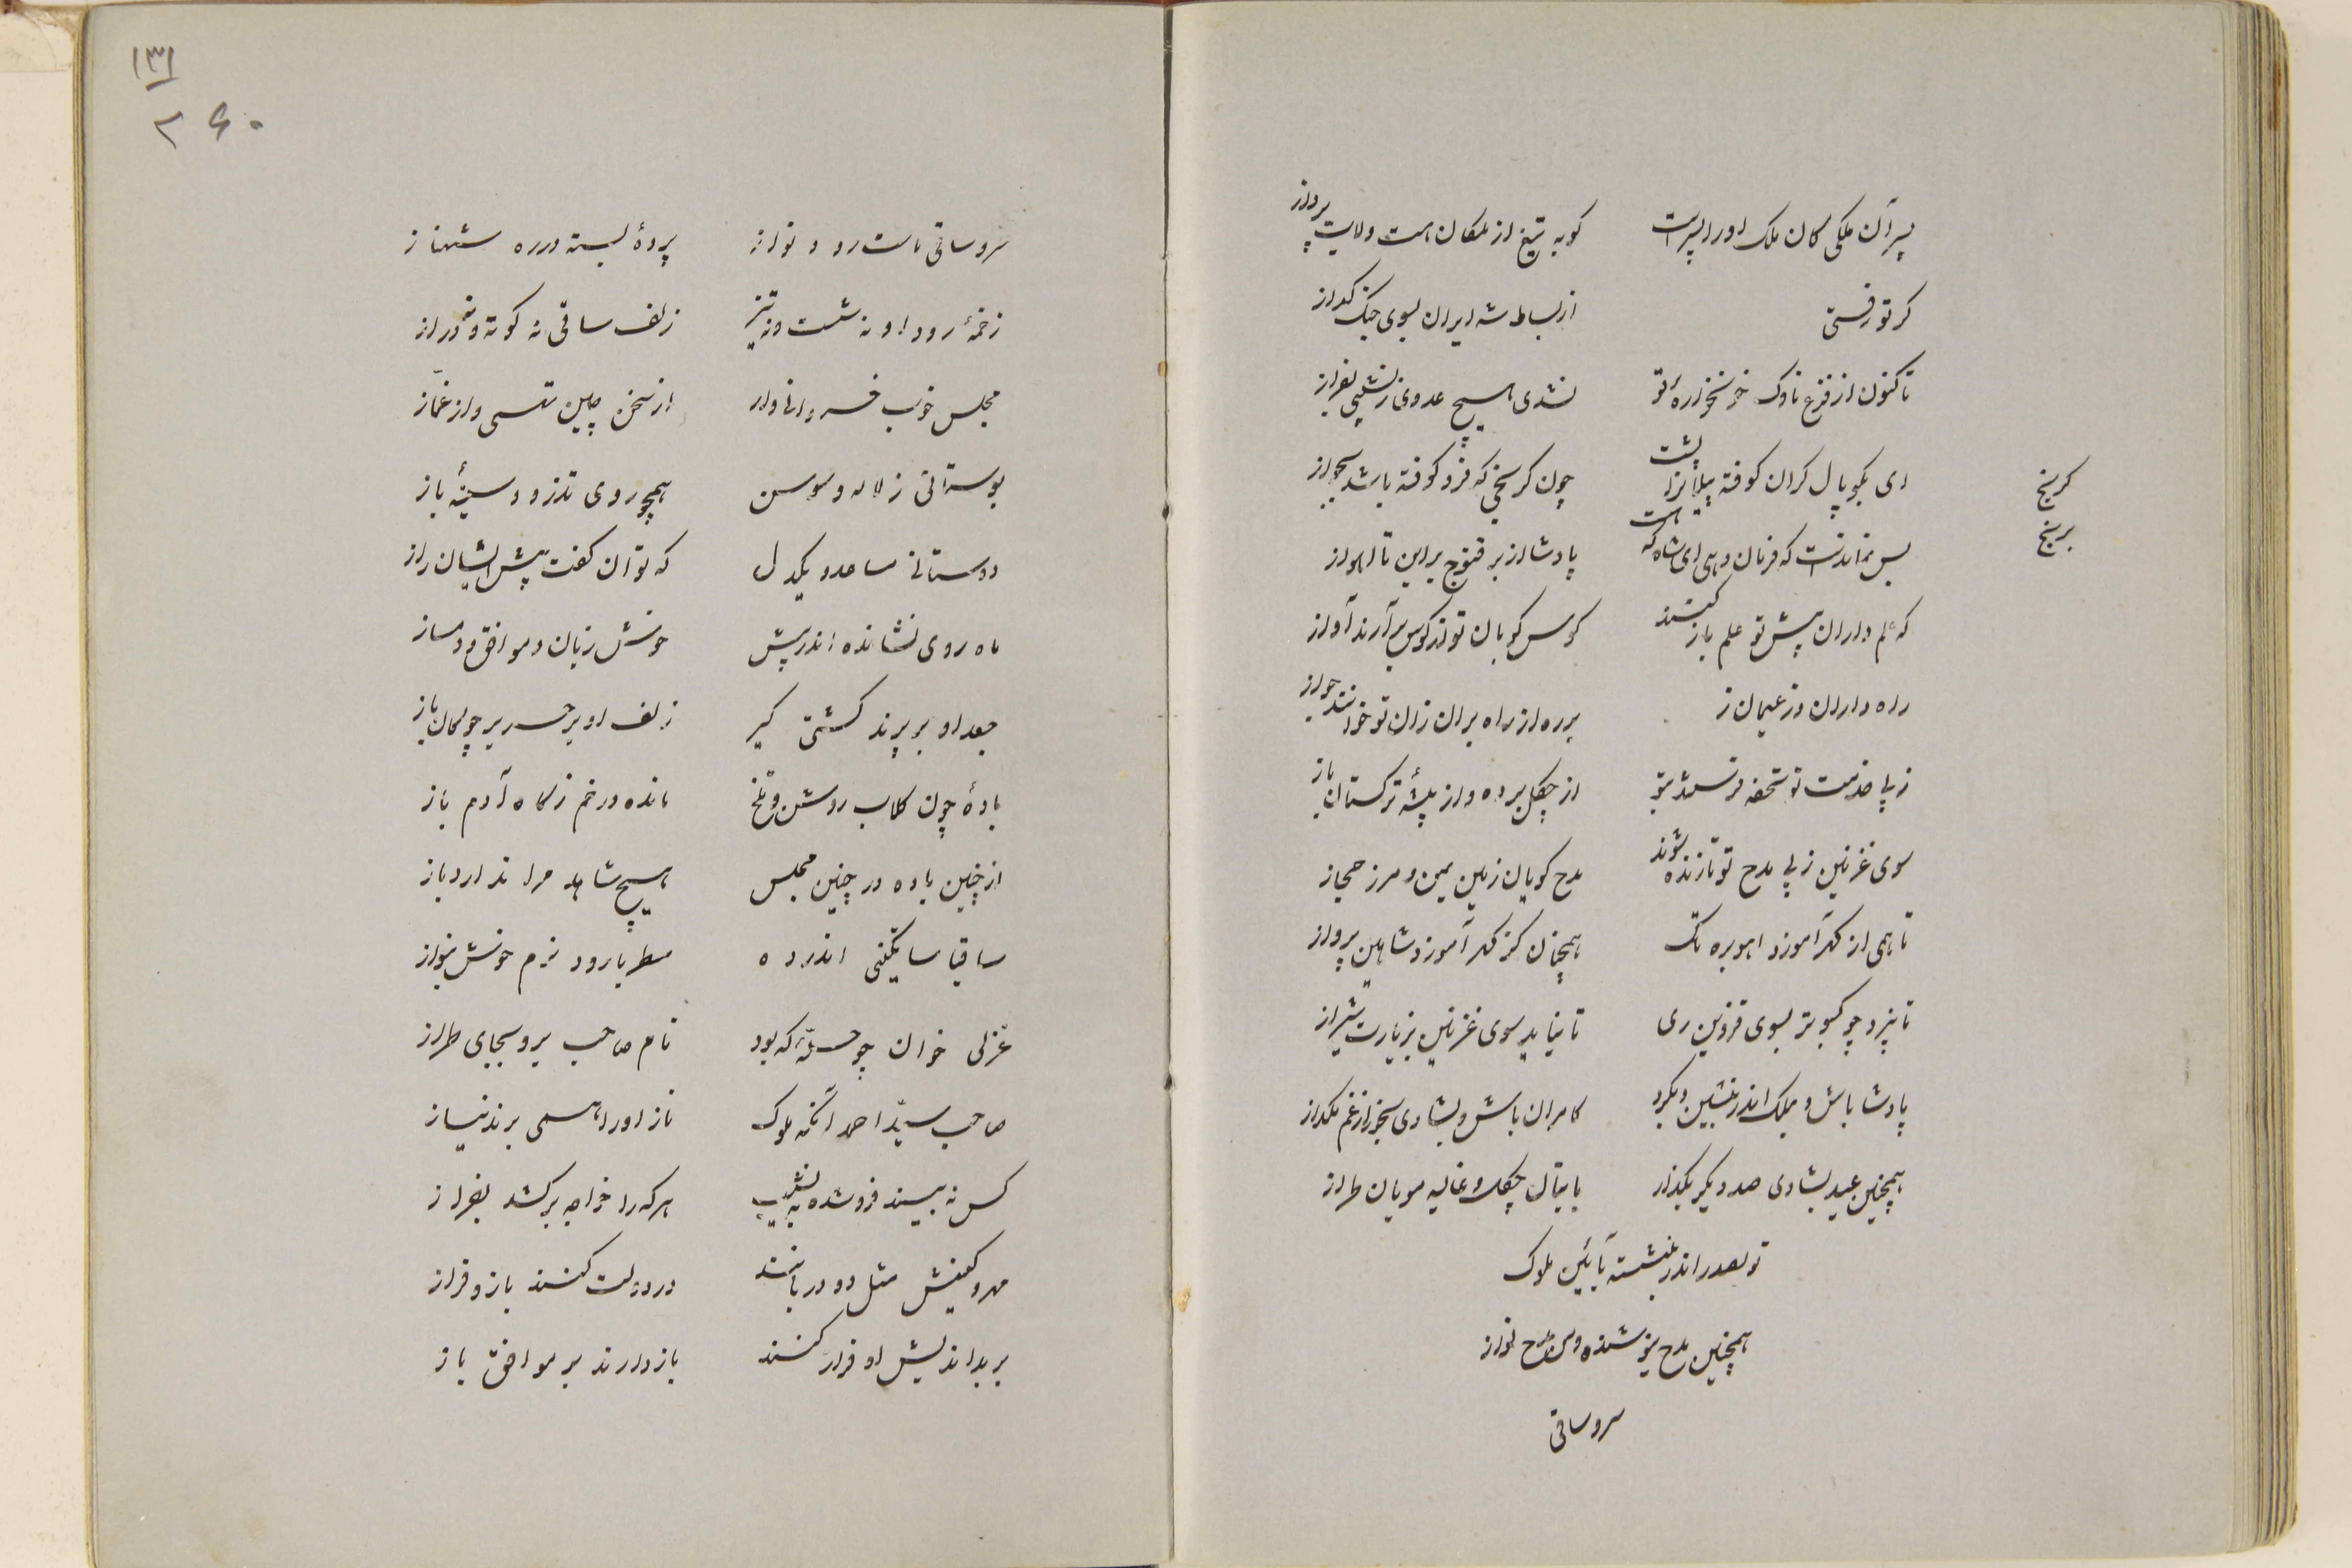 پسر آن ملکی کان ملک او را پسر است
کو به تیغ از ملکان هست ولایت پرداز
گر تو رفتی
از بساط شه ایران بسوی جنگ گداز
تا کنون از فزع ناوک خونخواره تو
نشدی هیچ عدوی ز نشیبی بفراز
ای بکوپال گران کوفته پیلانرا پشت
چون کرنجی که فرو کوفته باشد بجواز
کرنج
برنج
بس نماندست که فرمان دهی ای شاه که هست
پادشا از بر قنوج برین تا اهواز
که علم داران پیش تو علم باز کشند
کوس کوبان تو از کوس برآرند آواز
راه داران و زعیمان ز
بره از راه بران زان تو خواهند جواز
ز پی خدمت تو تحفه فرستند بتو
از چگل برده و از بیشه ترکستان باز
سوی غزنین ز پی مدح تو تازنده شوند
مدح گویان زمین یمن و مرز حجاز
تا همی از گهر آموزد آهو بره تک
همچنان کز گهر آموزد شاهین پرواز
تا نپرد چو کبوتر بسوی قزوین ری
تا نیاید سوی غزنین بزیارت شیراز
پادشا باش و بملک اندر بنشین و بگرد
کامران باش و بشادی بخور از غم مگداز
همچنین عید بشادی صد دیگر بگذار
با بتان چگل و غالیه مویان طراز
تو بصدر اندر بنشسته بآئین ملوک
همچنین مدح نیوشنده و مداح نواز
سرو ساقی
۱۳۱
۲۶۰
سرو ساقی ماست رود نواز
پردهٔ بسته در ره شهناز
زخمهٔ رود او نه شست و نه تیز
زلف ساقی نه کوته و نه دراز
مجلس خوب خسروانی وار
از سخن چین تهی و از غمّاز
بوستانی ز لاله و سوسن
همچو روی تذرو و سینهٔ باز
دوستانی مساعد و یکدل
که توان گفت پیش ایشان راز
ماه روی نشانده اندر پیش
خوش زبان و موافق و دمساز
جعد او بر پرند کشتی گیر
زلف او بر حریر چوگان باز
بادهٔ چون گلاب روشن و تلخ
مانده در خم ز گاه آدم باز
از چنین باده در چنین مجلس
هیچ شاهد مرا ندارد باز
ساقیا ساتگینی اندر ده
مطربا رود نرم خوش بنواز
غزلی خوان چو حلّه‌ که بود
نام صاحب برو بجای طراز
صاحب سیّد احمد آنکه ملوک
ناز او را همی برند نیاز
کس نه بیند فرو شده به نشیب
هر که را خواجه برکشد بفراز
مهر و کینش مثل دو دربانند
در دولت کنند باز و فراز
بر بد اندیش او فراز کنند
باز دارند بر موافق باز